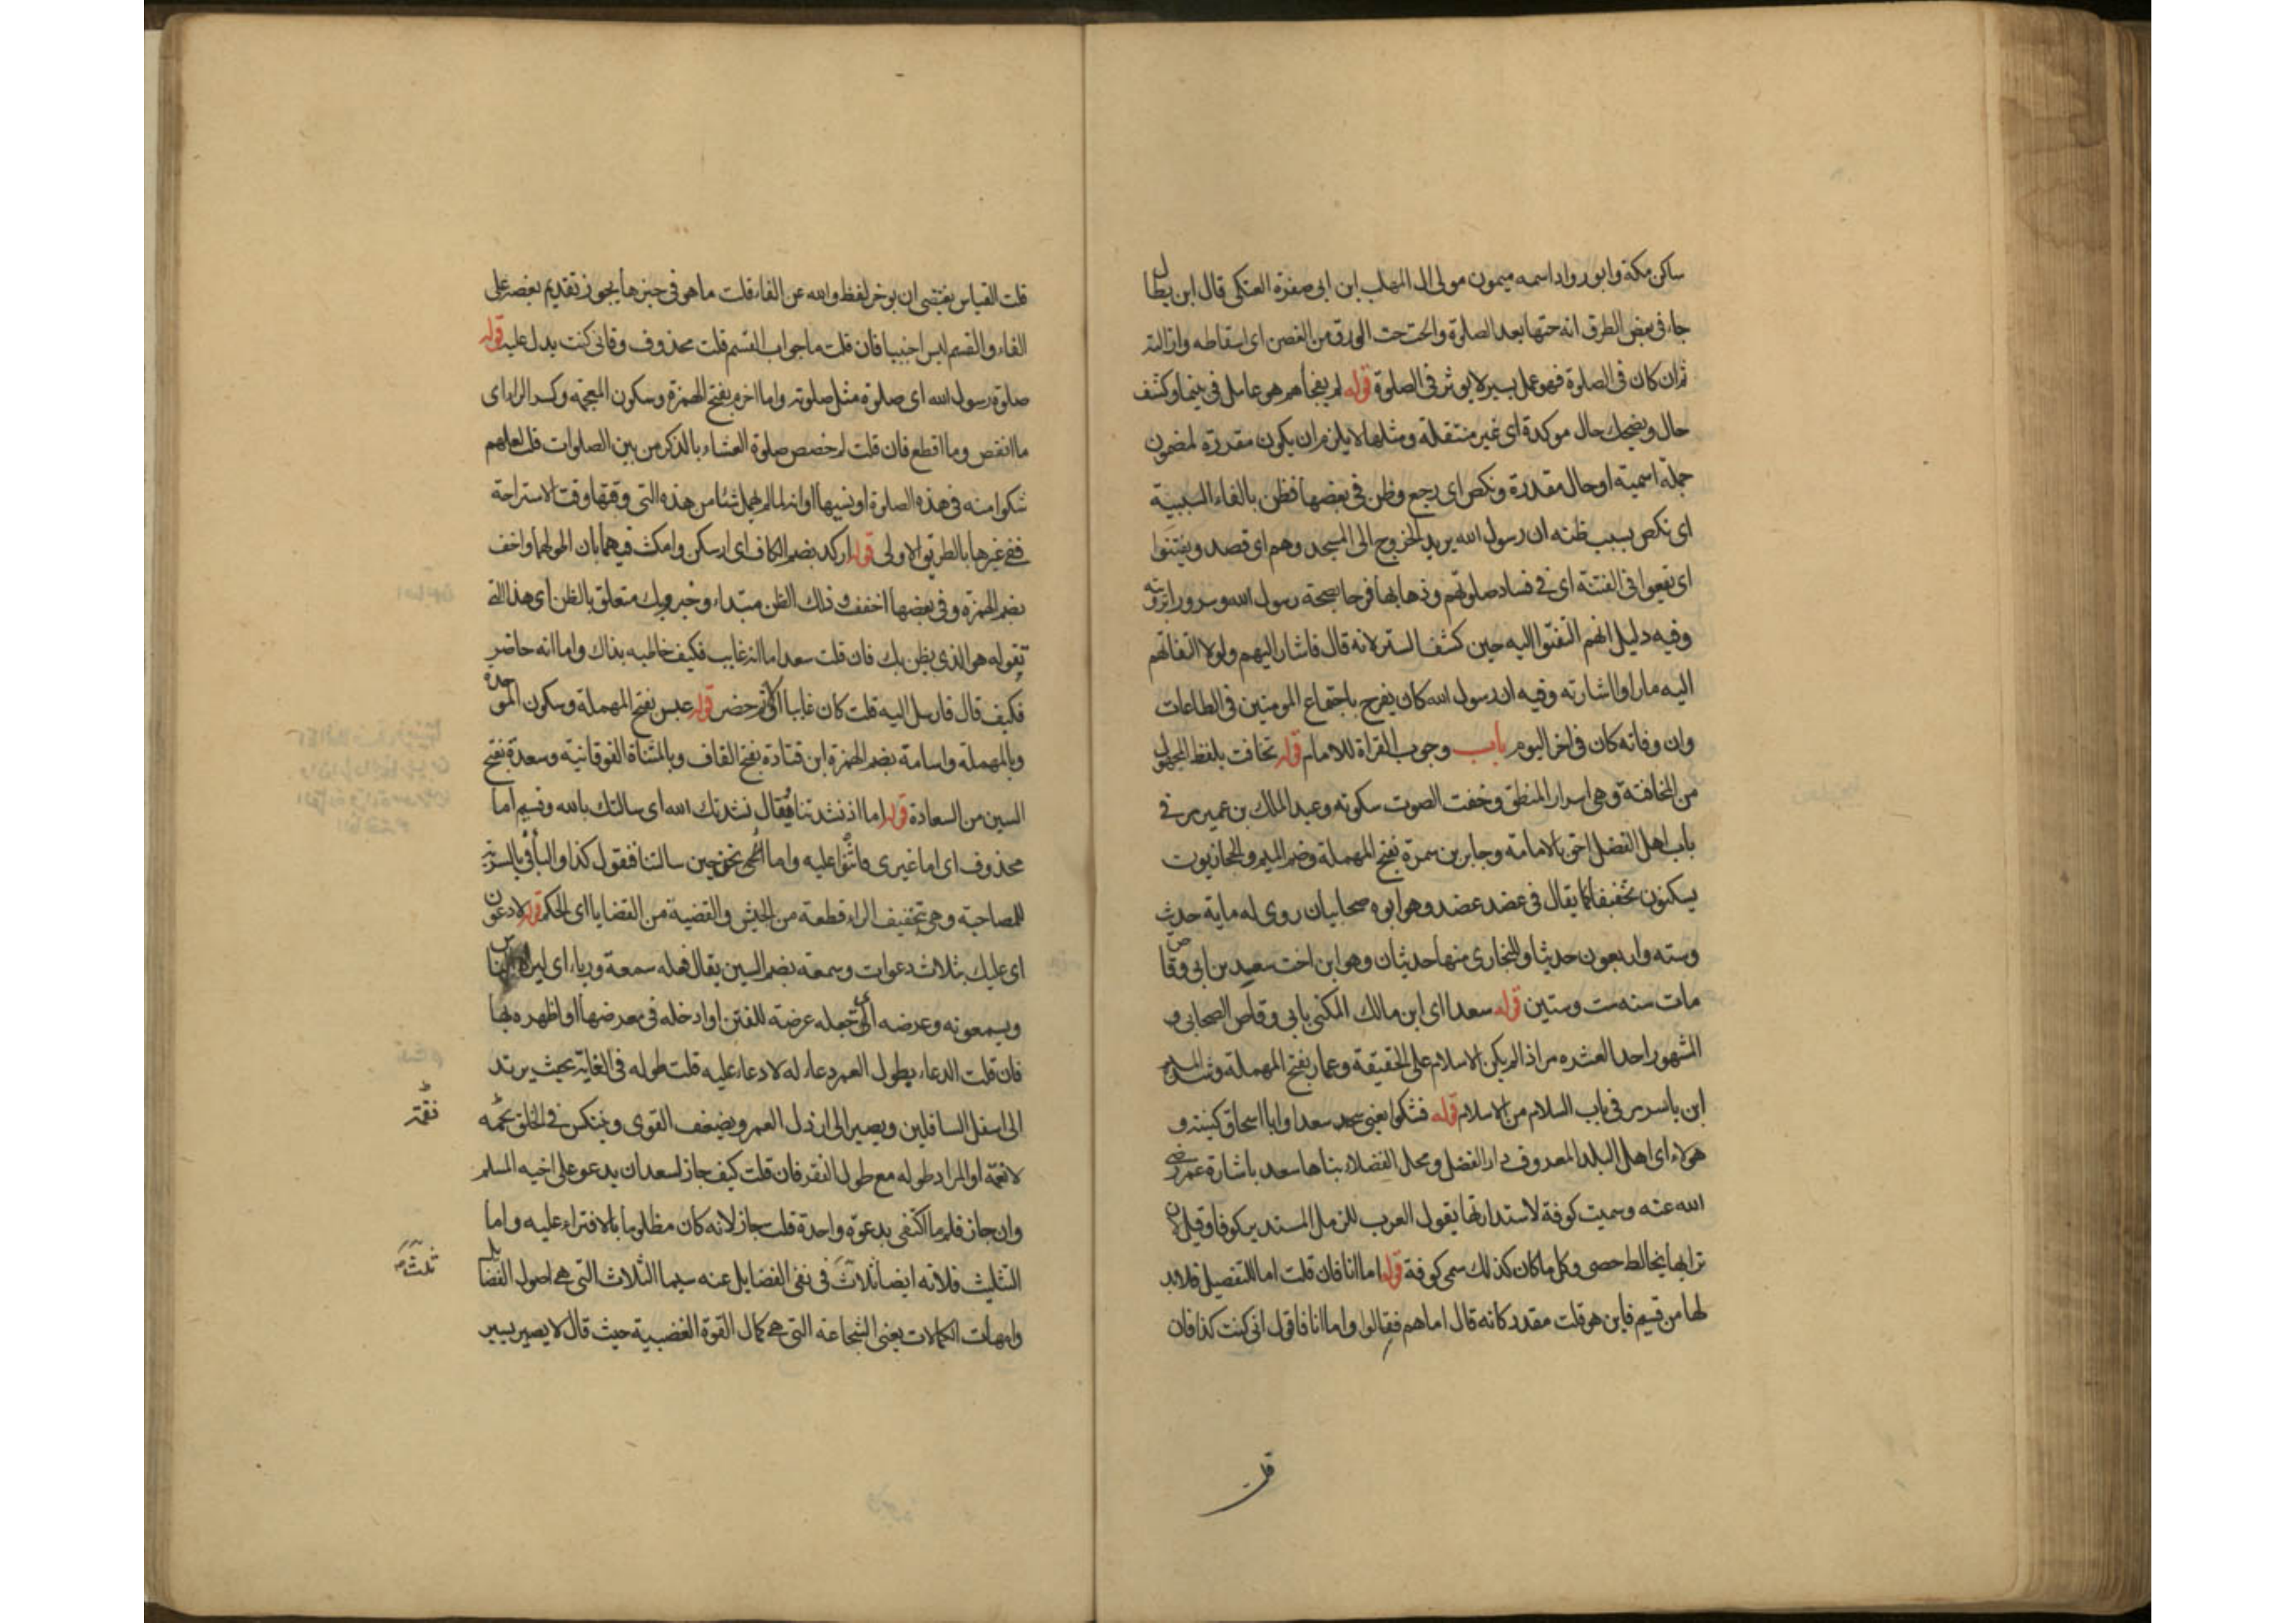 ساكن مكة وابو رواد اسمه ميمون مولى ال المهلب ابن ابى صفرة العتكى قال ابن بطال
جاء فى بعض الطرق انه حتها بعد الصلوة والحت حت الورق من الغصن اى اسقاطه وازالته
ثم ان كان فى الصلوة فهو عمل يسير لا يوثر فى الصلوة قوله لم يفجأهم هو عامل فى بينما وكشف
حال ويضحك حال موكدة اى غير منتقلة ومثلها لا يلزم ان يكون مقدرة لمضمون
جملة اسمية او حال مقدرة ونكص اى رجع وظن فى بعضها فظن بالفاء السببية
اى نكص بسبب ظنه ان رسول الله يريد الخروج الى المسجد وهم اى قصد ويفتتنوا
اى يقعوا فى الفتنة اى فى فساد صلوتهم وذهابها فرحا بصحة رسول الله وسرورا برؤيته
وفيه دليل انهم التفتوا اليه حين كشف الستر لانه قال فاشار اليهم ولولا التفاتهم
اليه ما راوا اشارته وفيه ان رسول الله كان يفرح باجتماع المومنين فى الطاعات
وان وفاته كان فى اخر اليوم باب وجوب القراة للامام قوله تخافت بلفظ المجهول
من المخافتة وهى اسرار المنطق وخفت الصوت سكوته وعبد الملك بن عمير مر فى
باب اهل الفضل احق بالامامة وجابر بن سمرة بفتح المهملة وضم الميم والحجازيون
يسكنون تخفيفا كما يقال فى عضد عضد وهو ابوه صحابيان روى له ماية حديث
وسته واربعون حديثا وللبخارى منها حديثان وهو ابن اخت سعيد بن ابى وقاص
مات سنه ست وستين قوله سعدا اى ابن مالك المكنى بابى وقاص الصحابى و
المشهور احد العشره مر اذا لم يكن الاسلام على الحقيقة وعمار بفتح المهملة وشدة الميم
ابن ياسر مر فى باب السلام من الاسلام قوله فشكوا يعنى سعدا وابا اسحاق كنيته و
هولاء اى اهل البلد المعروف دار الفضل ومحل الفضلاء بناها سعد باشارة عمر رضى
الله عنه وسميت كوفة لاستدارتها يقول العرب للرمل المستدير كوفا وقيل لان
ترابها يخالط حصى وكل ما كان كذلك سمى كوفة قوله اما انا فان قلت اما للتفصيل فلابد
لها من قسيم فاين هو قلت مقدر كانه قال اما هم فقالوا واما انا فاقول انى كنت كذا فان
قلت
قلت القياس يقتضى ان يوخر لفظ والله عن الفاء قلت ما هو فى حيزها يجوز تقديم بعضه على
الفاء والقسم ليس اجنبيا فان قلت ما جواب القسم قلت محذوف وفانى كنت يدل عليه قوله
صلوة رسول الله اى صلوة مثل صلوته وما اخرم بفتح الهمزة وسكون المعجمة وكسر الراء اى
ما انقص وما اقطع فان قلت لم خصص صلوة العشاء بالذكر من بين الصلوات قلت لعلهم
شكوا منه فى هذه الصلوة او نسيها او انه لما لم يهمل شئا من هذه التى وقتها وقت الاستراحة
ففى غيرها بالطريق الاولى قوله اركد بضم الكاف اى اسكن وامكث فيهما بان اطولهما واخف
بضم الهمزة وفى بعضها اخفف وذلك الظن مبتداء وخبر وبك متعلق بالظن اى هذا الذى
تقوله هو الذى يظن بك فان قلت سعد اما انه غايب فكيف خاطبه بذاك واما انه حاضر
فكيف قال فارسل اليه قلت كان غايبا اولا ثم حضر قوله عبس بفتح المهملة وسكون الموحدة
وبالمهملة واسامة بضم الهمزة ابن قتادة بفتح القاف وبالمثناة الفوقانية وسعدة بفتح
السين من السعادة قوله اما اذ نشدتنا فيقال نشدتك الله اى سالتك بالله وقسيم اما
محذوف اى اما غيرى فاثنوا عليه واما نحن حين سالتنا فنقول كذا والباء فى بالسرية
للمصاحبة وهى تخفيف الراء قطعة من الجيش والقضية من القضايا اى الحكم قوله لادعون
اى عليك بثلاث دعوات وسمعة بضم السين يقال فعله سمعة ورياء اى ليراه الناس
ويسمعونه وعرضه اى تجعله عرضة للفتن او ادخله فى معرضها او اظهره بها
فان قلت الدعاء بطول العمر دعاء له لا دعاء عليه قلت طوله فى الغاية بحيث يرتد
الى اسفل السافلين ويصير الى ارذل العمر ويضعف القوى وينتكس فى الخلق نقمة
لا نعمة او المراد طوله مع طول الفقر فان قلت كيف جاز لسعد ان يدعو على اخيه المسلم
وان جاز فلم ما اكتفى بدعوة واحدة قلت جاز لانه كان مظلوما بالافتراء عليه واما
التثليث فلانه ايضا ثلاث فى نفى الفضايل عنه سيما الثلاث التى هى اصول الفضايل
وامهات الكمالات يعنى الشجاعة التى هى كمال القوة الغضبية حيث قال لا يصير يسير
نقمة
ثلث